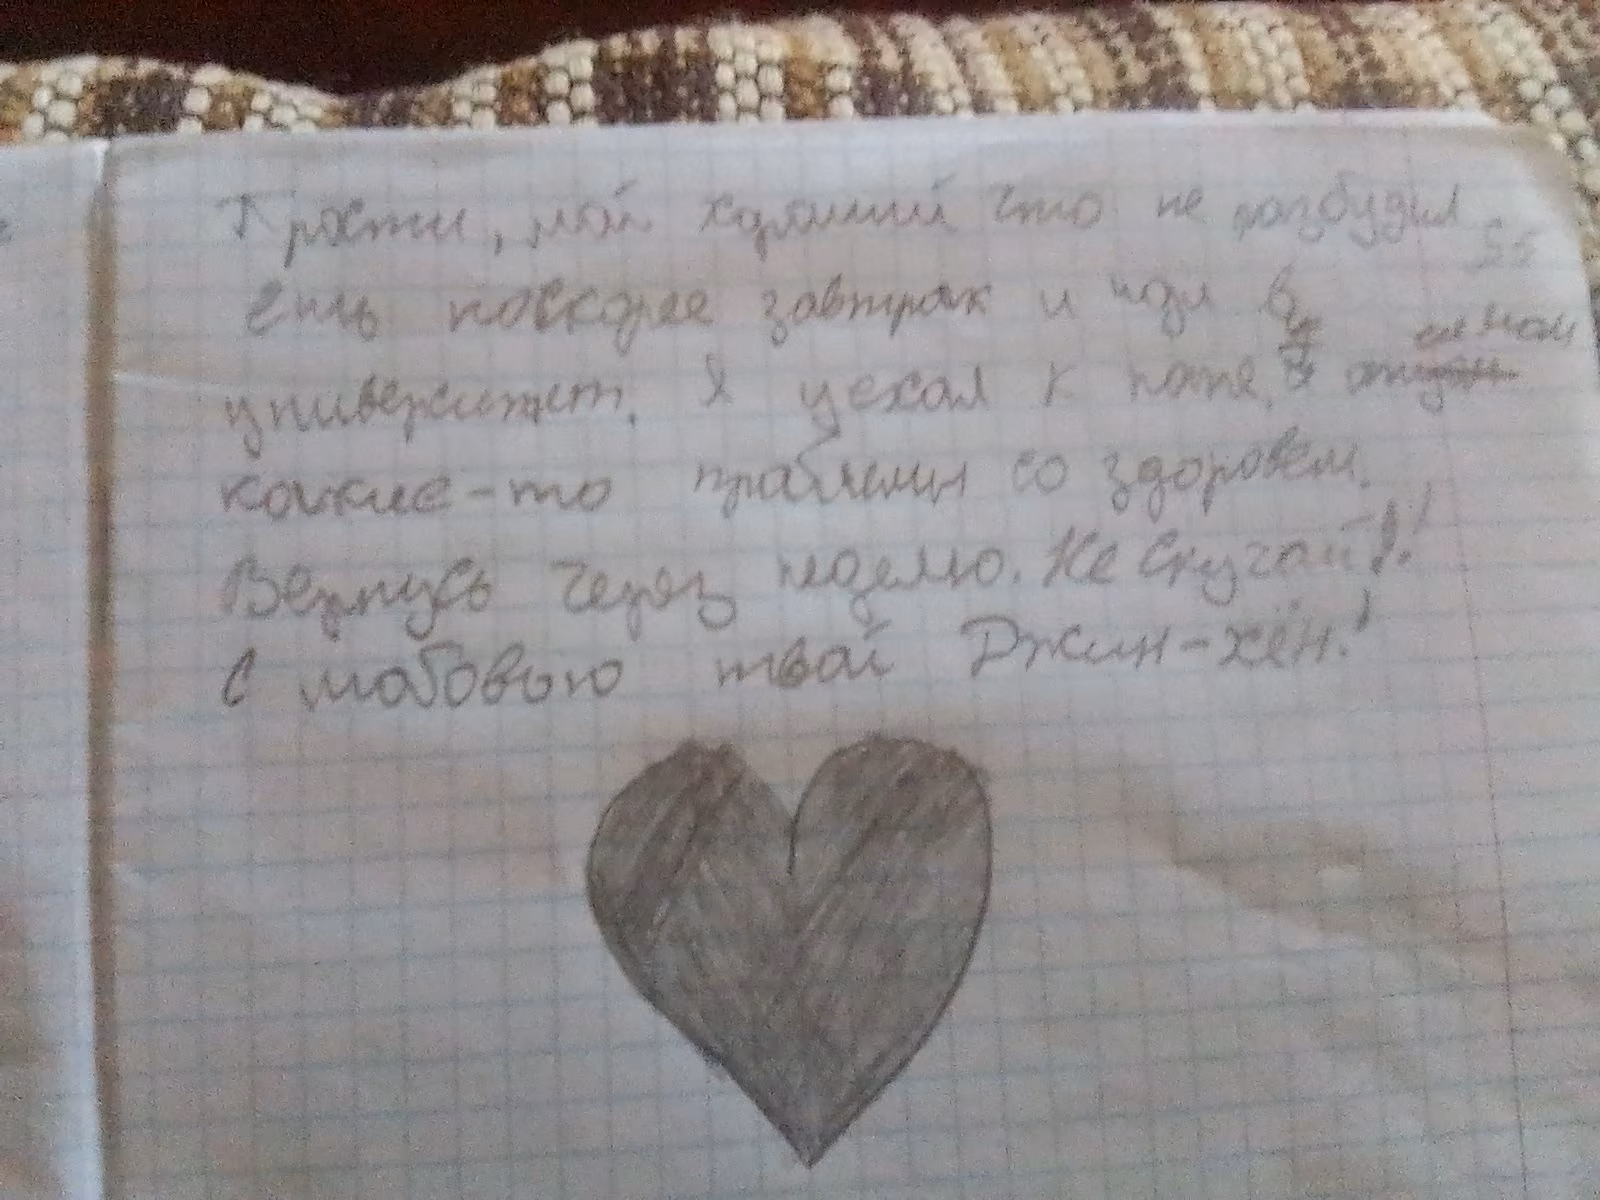 Прости, мой хороший что не разбудил
Ешь поскорее завтрак и иди в
университет. Я уехал к папе, у
какие-то проблемы со здоровем.
Вернусь через неделю. Не скучай!!!
С любовью твой Джин-хён!